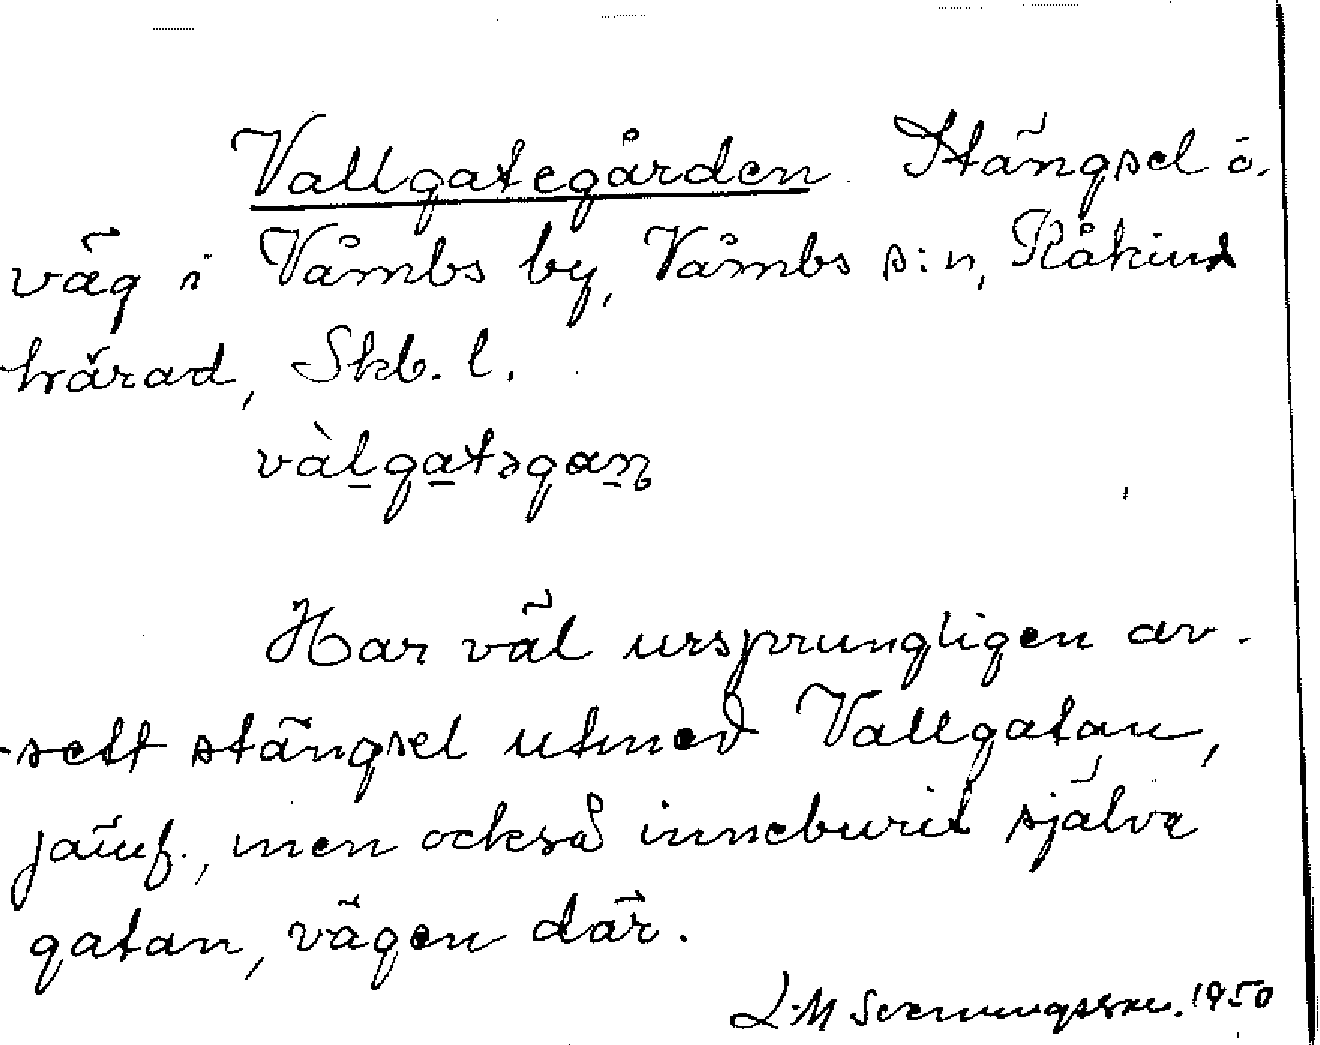 Vallgategården Stängsel ö.
väg i Våmbs by, Våmbs s:n, Kåkinds
härad, Skb. l.
vàlgatəgaṇ
Har väl ursprungligen av-
sett stängsel utmed Vallgatan,
jämf., men också inneburit själva
gatan, vägen där.
L-M Svenungsson. 1950